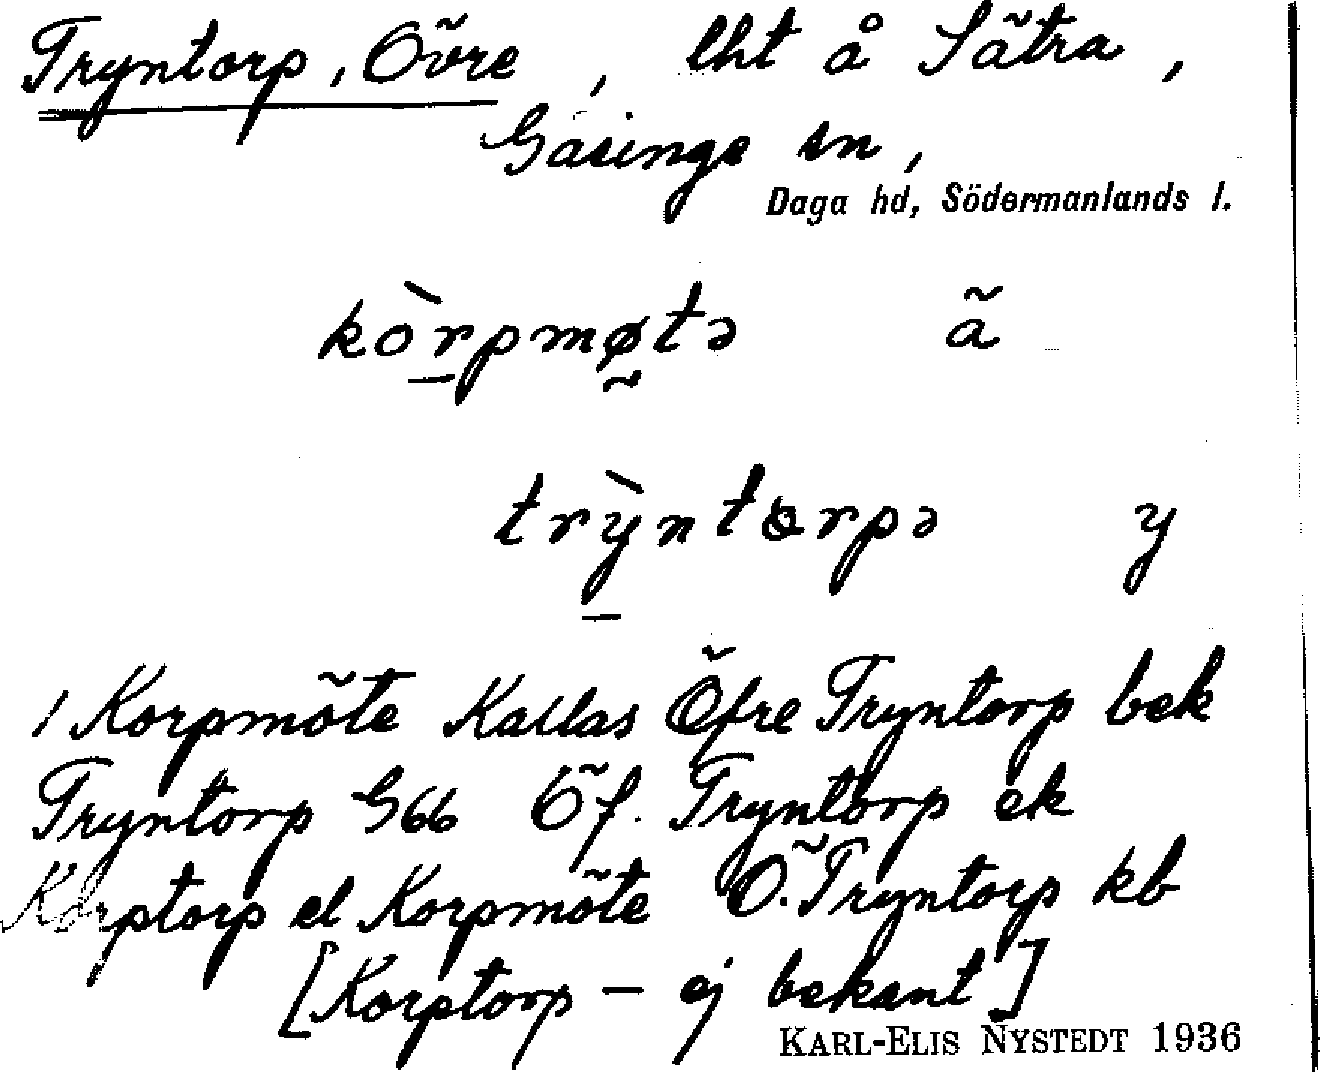 Tryntorp, Övre, lht å Sätra,
Gåsinge sn,
Daga hd, Södermanlands l.
kòrpmøtə ä
trỳntɷrpə y
1 Korpmöte Kallas Öfre Tryntorp bek
Tryntorp G66 Öf. Tryntorp ek
Korptorp el Korpmöte Ö. Tryntorp kb
[Korptorp – ej bekant]
KARL-ELIS NYSTEDT 1936